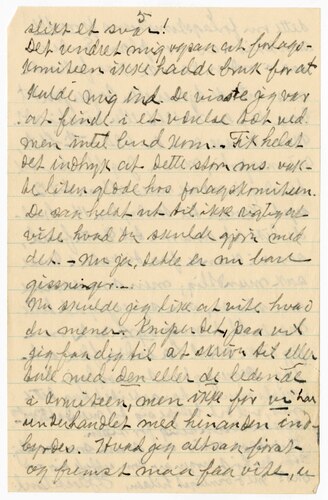 5
slikt et svar!
Det undret mig ogsaa at forlags-
komiteen ikke hadde bruk for at
kalde mig ind. De visste jeg var
at finde i et værelse tæt ved
men intet bud kom. Fik helst
det indtryk at dette store ms. vak-
te liten glæde hos forlagskomiteen.
De saa helst ut til ikke rigtig at
vite hvad de skulde gjøre med
det. - Nu ja, dette er nu bare
gissninger.
Nu skulde jeg like at vite hvad
du mener. Kniper det paa vil
jeg faa dig til at skrive til eller
tale med den eller de ledende
i komiteen, men ikke før vi har
underhandlet med hinanden ind-
byrdes. Hvad jeg altsaa først
og fremst maa faa vite, er